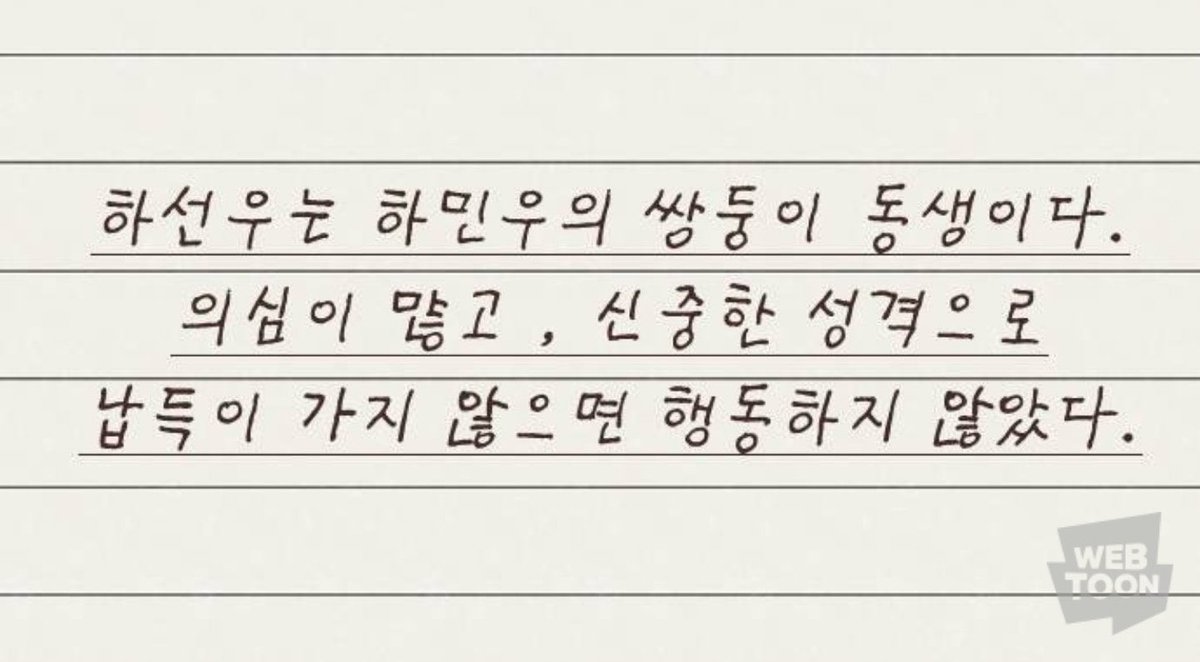 하선우는 하민우의 쌍둥이 동생이다.
의심이 많고, 신중한 성격으로
납득이 가지 않으면 행동하지 않았다.
WEB
TOON